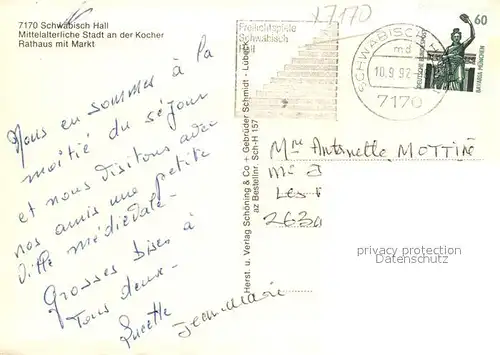 7170 Schwäbisch Hall
Mittelalterliche Stadt an der Kocher
Rathaus mit Markt
Nous en sommes à la
moitié du séjour
et nous visitons avec
nos amis une petite
ville médiévale.
Grosses bises à
tous deux.
Lucette Jean Marie
Herst. u. Verlag Schöning & Co + Gebrüder Schmidt - Lübeck
az Bestellnr. Sch-H 157
17170
Freilichtspiele
Schwäbisch
Hall
SCHWÄBISCH
md
10.9.92
7170
60
DEUTSCHE BUNDESPOST
BAVARIA MÜNCHEN
Mme Antoinette MOTTIN
Les
2630
privacy protection
Datenschutz